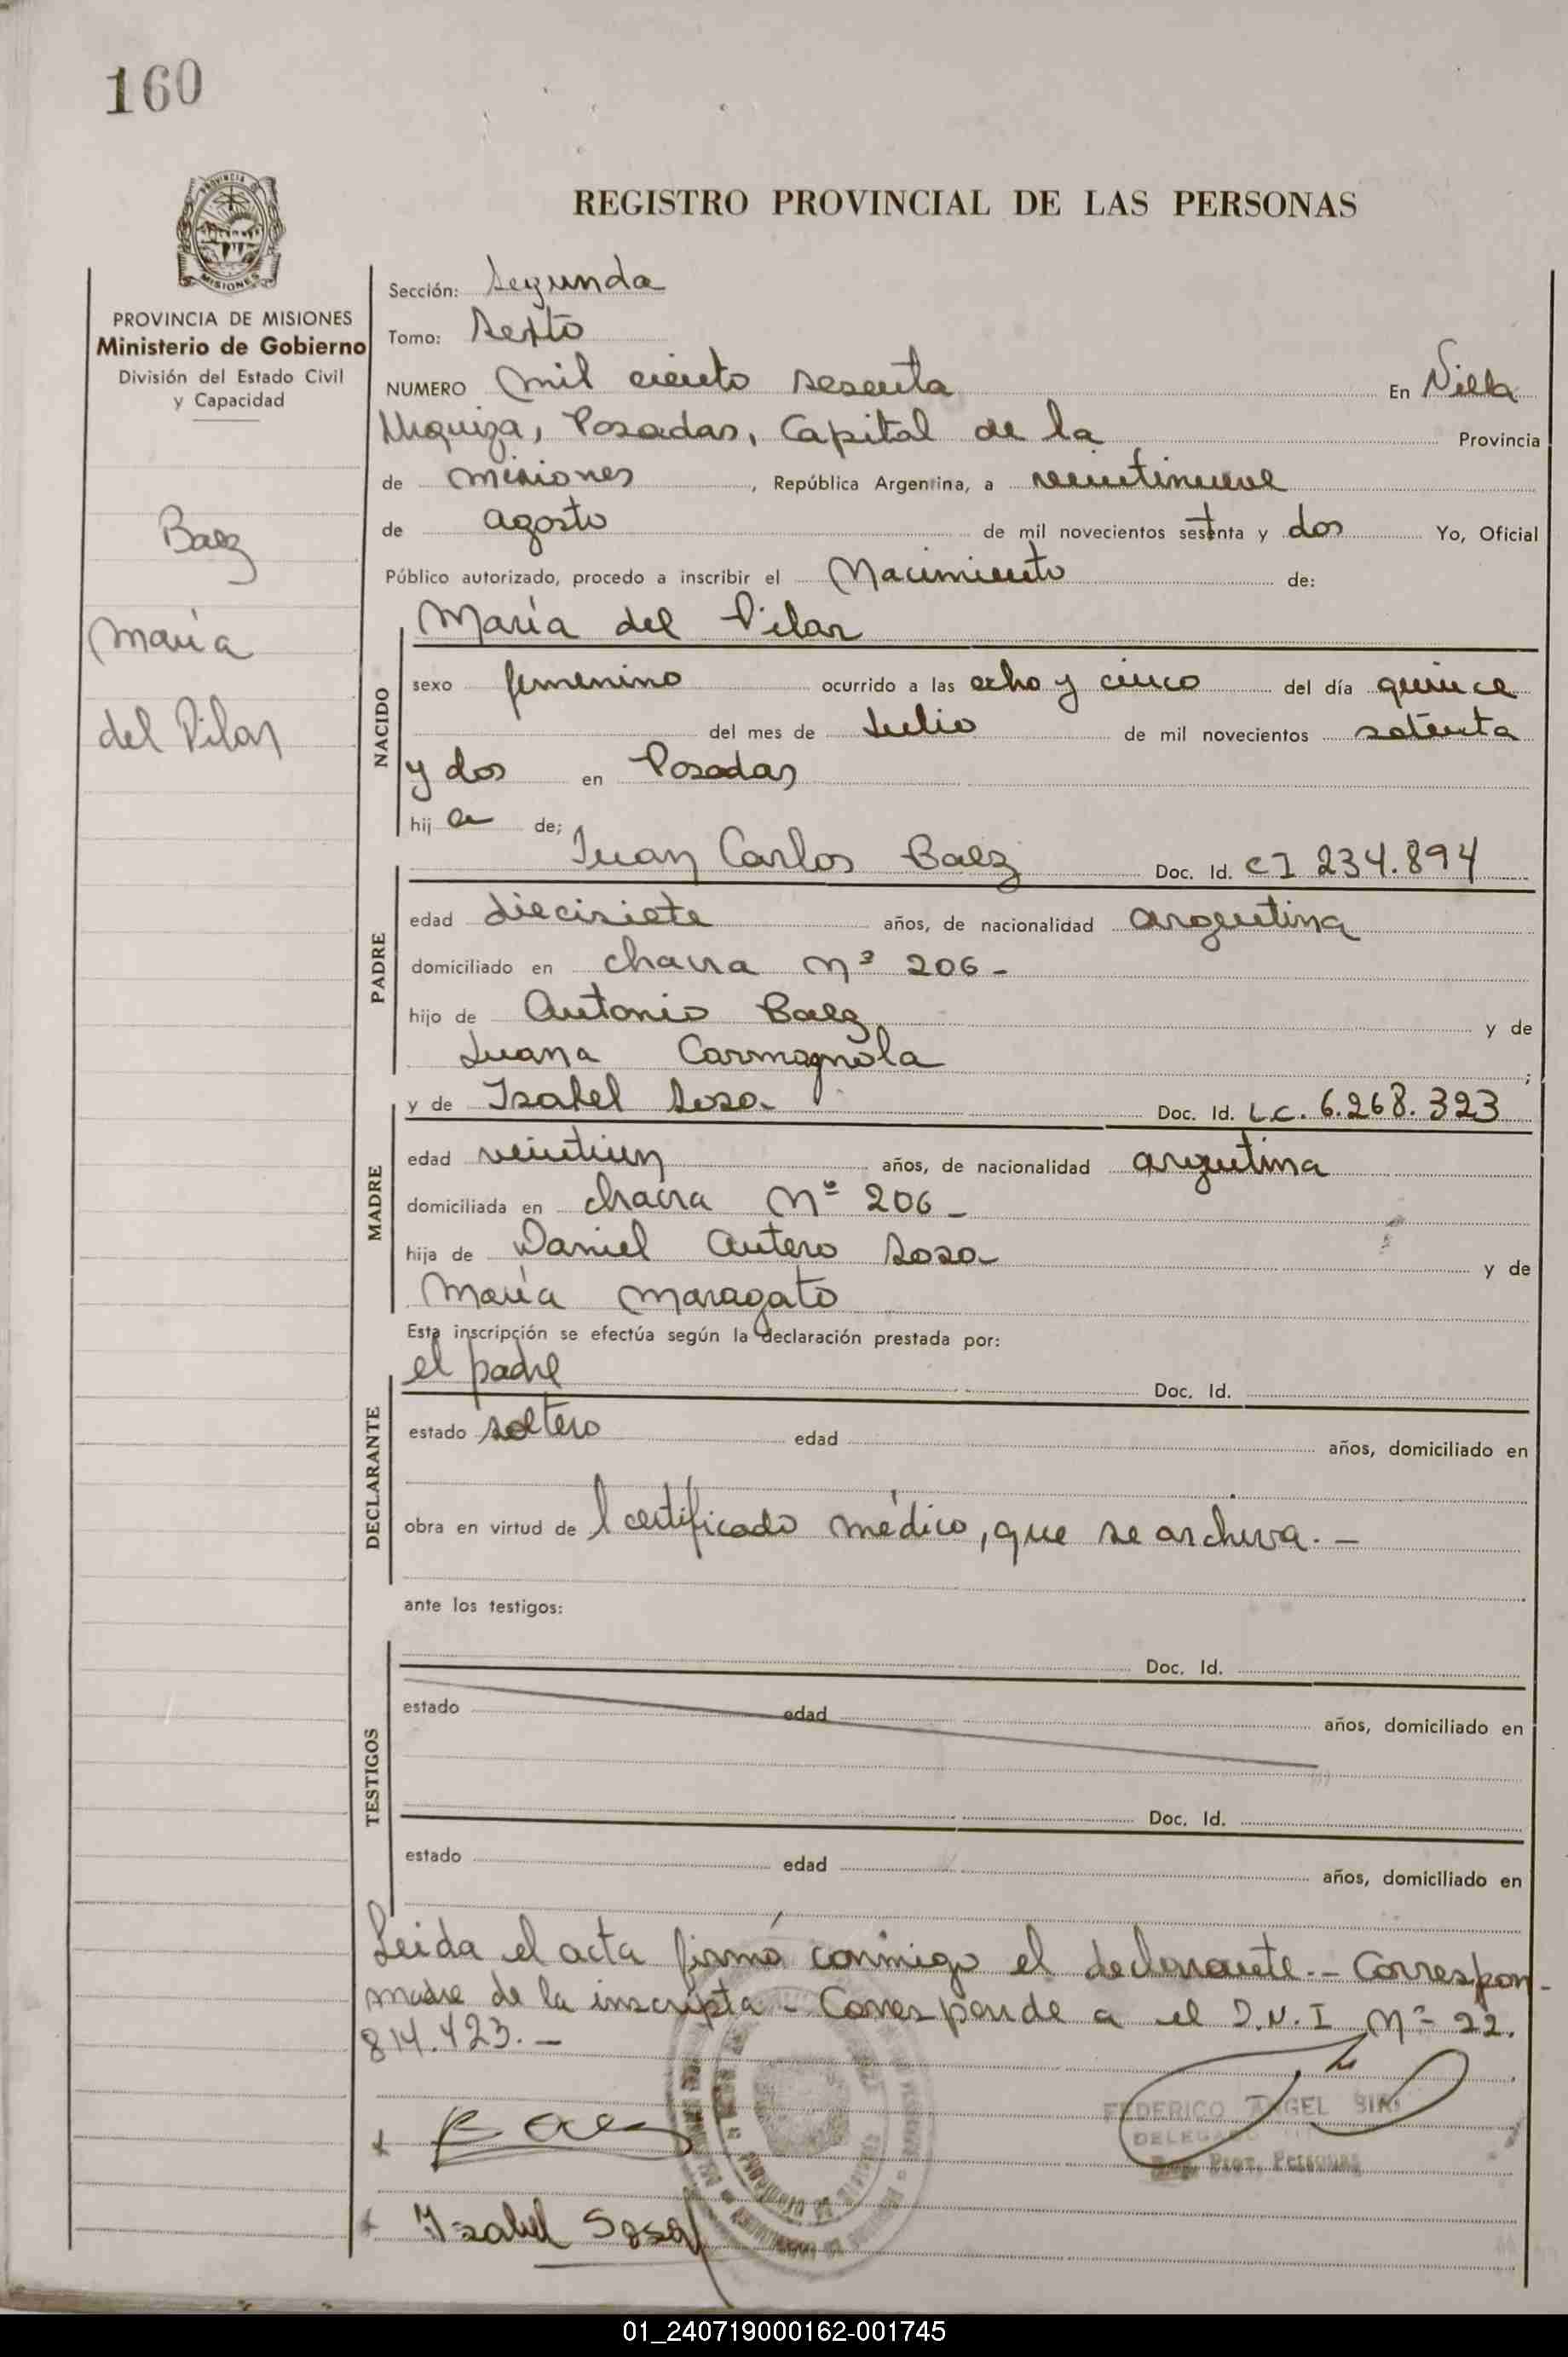 160
REGISTRO PROVINCIAL DE LAS PERSONAS
PROVINCIA DE MISIONES
Ministerio de Gobierno
División del Estado Civil
y Capacidad
Baez
María
del Pilar
Sección: Segunda
Tomo: Sexto
NUMERO mil ciento sesenta En Villa
Urquiza, Posadas, Capital de la Provincia
de misiones, República Argentina, a veintinueve
de agosto de mil novecientos setenta y dos Yo, Oficial
Público autorizado, procedo a inscribir el Nacimiento de:
María del Pilar
NACIDO
sexo femenino ocurrido a las ocho y cinco del día quince
del mes de Julio de mil novecientos setenta
y dos en Posadas
hij a de;
Juan Carlos Baez Doc. Id. C I 234.894
PADRE
edad diecisiete años, de nacionalidad argentina
domiciliado en chacra Nº 206 -
hijo de Antonio Baez y de
Juana Carmagnola ;
y de Isabel Sosa Doc. Id. L.C. 6.268.323
MADRE
edad veintiun años, de nacionalidad argentina
domiciliada en chacra Nº 206 -
hija de Daniel Antero Sosa y de
María Maragato
Esta inscripción se efectúa según la declaración prestada por:
el padre Doc. Id.
DECLARANTE
estado soltero edad años, domiciliado en
obra en virtud de l certificado médico, que se archiva. -
ante los testigos:
Doc. Id.
TESTIGOS
estado edad años, domiciliado en
Doc. Id.
estado edad años, domiciliado en
Leida el acta firmó conmigo el declarante. - Correspon-
madre de la inscripta - Corresponde a el D.N.I Nº 22.
814.423. -
Baez
FEDERICO ANGEL
DELEGADO
Prov. Personas
Isabel Sosa
01_240719000162-001745